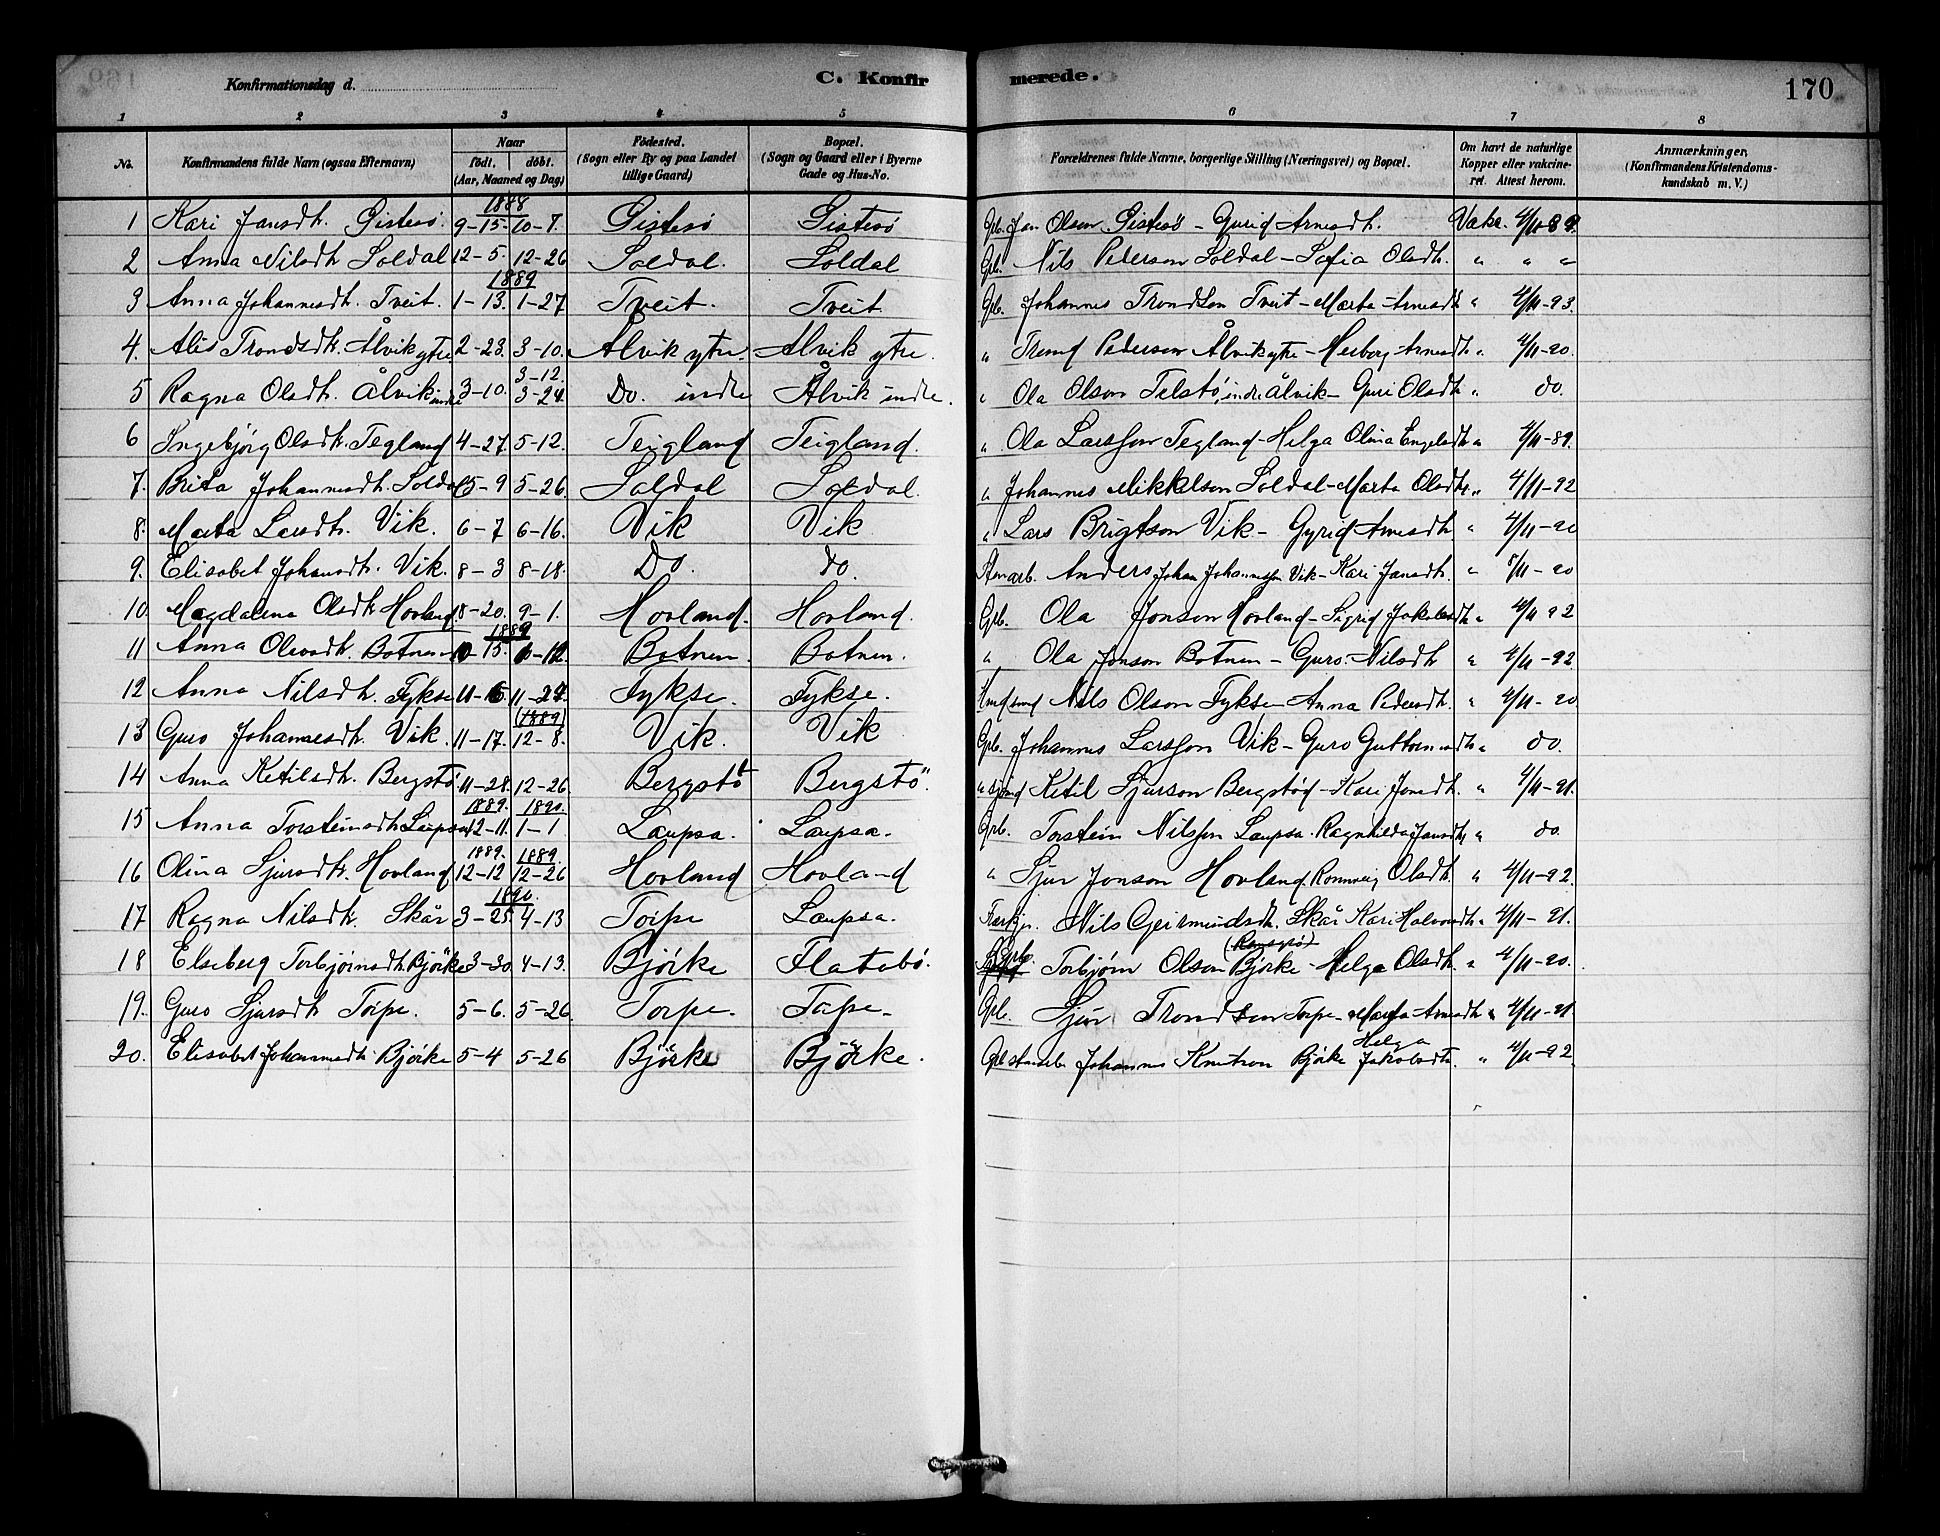 Konfirmationsdag d. C. Konfir merede. 170
1 2 3 4 5 6 7 8
No. Konfirmandens fulde Navn (ogsaa Efternavn) Naar födt. döbt. (Aar, Maaned og Dag) Födested. (Sogn eller By og paa Landet tillige Gaard) Bopæl. (Sogn og Gaard eller i Byerne Gade og Hus-No. Forældrenes fulde Navne, borgerlige Stilling (Næringsvei) og Bopæl. Om havt de naturlige Kopper eller vakcineret. Attest herom. Anmærkninger, (Konfirmandens Kristendomskundskab m. V.)
1888
1 Kari Jansdtr. Gistesö. 9-15- 10-7. Gistesö Gistesö Grb. Jan Olson Gistesö - Gurid Arnesdtr. Vakc. 4/10 89.
2 Anna Nilsdtr Soldal 12-5. 12-26 Soldal. Soldal Grb. Nils Pederson Soldal - Sofia Olsdtr. " " "
1889
3 Anna Johannesdtr. Tveit. 1-13. 1-27 Tveit. Tveit Grb. Johannes Trondson Tveit - Marta Arnesdtr " 4/11-93.
4. Alis Trondsdtr. Ålvik ytre 2-23. 3-10. Ålvik ytre. Alvik ytre. " Trond Pederson Ålvik ytre - Herborg Arnesdtr " 4/11-90.
3-12.
5 Ragna Olsdtr. Ålvik indre 3-10. 3-24. Do. indre Ålvik indre. " Ola Olson Telstö, indr. Ålvik - Guri Olsdtr " do.
6 Ingebjörg Olsdtr. Tegland 4-27. 5-12. Teigland Teigland. " Ola Larsson Tegland - Helga Olina Engelsdtr " 4/11-89.
7. Brita Johannesdtr. Soldal 5-9 5-26. Soldal Soldal. " Johannes Mikkelson Soldal - Marta Olsdtr. " 4/11-92
8. Marta Larsdtr. Vik. 6-7 6-16. Vik Vik " Lars Brigtson Vik - Gyrid Arnesdtr " 4/11-90
9. Elisabet Johansdtr. Vik. 8-3 8-18. Do. do. Anders Johan Johannesson Vik - Kari Jansdtr. " 5/11-90
10. Magdalena Olsdtr Hovland. 8-20. 9-1. Hovland. Hovland. Grb. Ola Jonson Hovland - Sigrid Jakobsdtr " 4/11 92
1889
11 Anna Olavsdtr. Botnen 10-15. 10-12. Botnen. Botnen. " Ola Jonson Botnen - Guro Nilsdtr " 4/11-92.
12 Anna Nilsdtr. Fykse 11-6 11-24. Fykse. Fykse. Nils Olson Fykse - Anna Pedersdtr. " 4/11-90
(1889)
13 Guro Johannesdtr. Vik. 11-17. 12-8. Vik. Vik Grb. Johannes Larsson Vik - Guro Guttormsdtr " do.
14 Anna Ketilsdtr. Bergstö 11-28. 12-26. Bergstö Bergstö. " Ketil Sjurson Bergstöd - Kari Jonsdtr. " 4/11-91.
1889. 1890.
15 Anna Torsteinsdtr Laupsa 12-11. 1-1. Laupsa. Laupsa. Grb. Torstein Nilsson Laupsa. Ragnhilda Jansdtr " do.
1889. 1889.
16 Olina Sjursdtr. Hovland 12-12 12-26 Hovland Hovland " Sjur Jonson Hovland Ronnveig Olsdtr. " 4/11-92.
1890.
17 Ragna Nilsdtr. Skår 3-25. 4-13 Torpe Laupsa. Nils Geirmundsdtr. Skår Kari Halvorsdtr " 4/11-91.
18 Elseberg Torbjörnsdtr. Björke 3-30. 4-13. Björke Flatabö. Grb. Torbjörn Olson Björke - Helga Olsdtr. " 4/11-90.
19. Guro Sjursdtr Torpe. 5-6. 5-26. Torpe. Tope. Grb. Sjur Trondson Torpe - Marta Arnesdtr " 4/11-91.
20. Elisabet Johannesdtr Björke 5-4 5-26 Björke Björke. Johannes Knutson Björke Helga Jakobsdtr. " 4/11-92